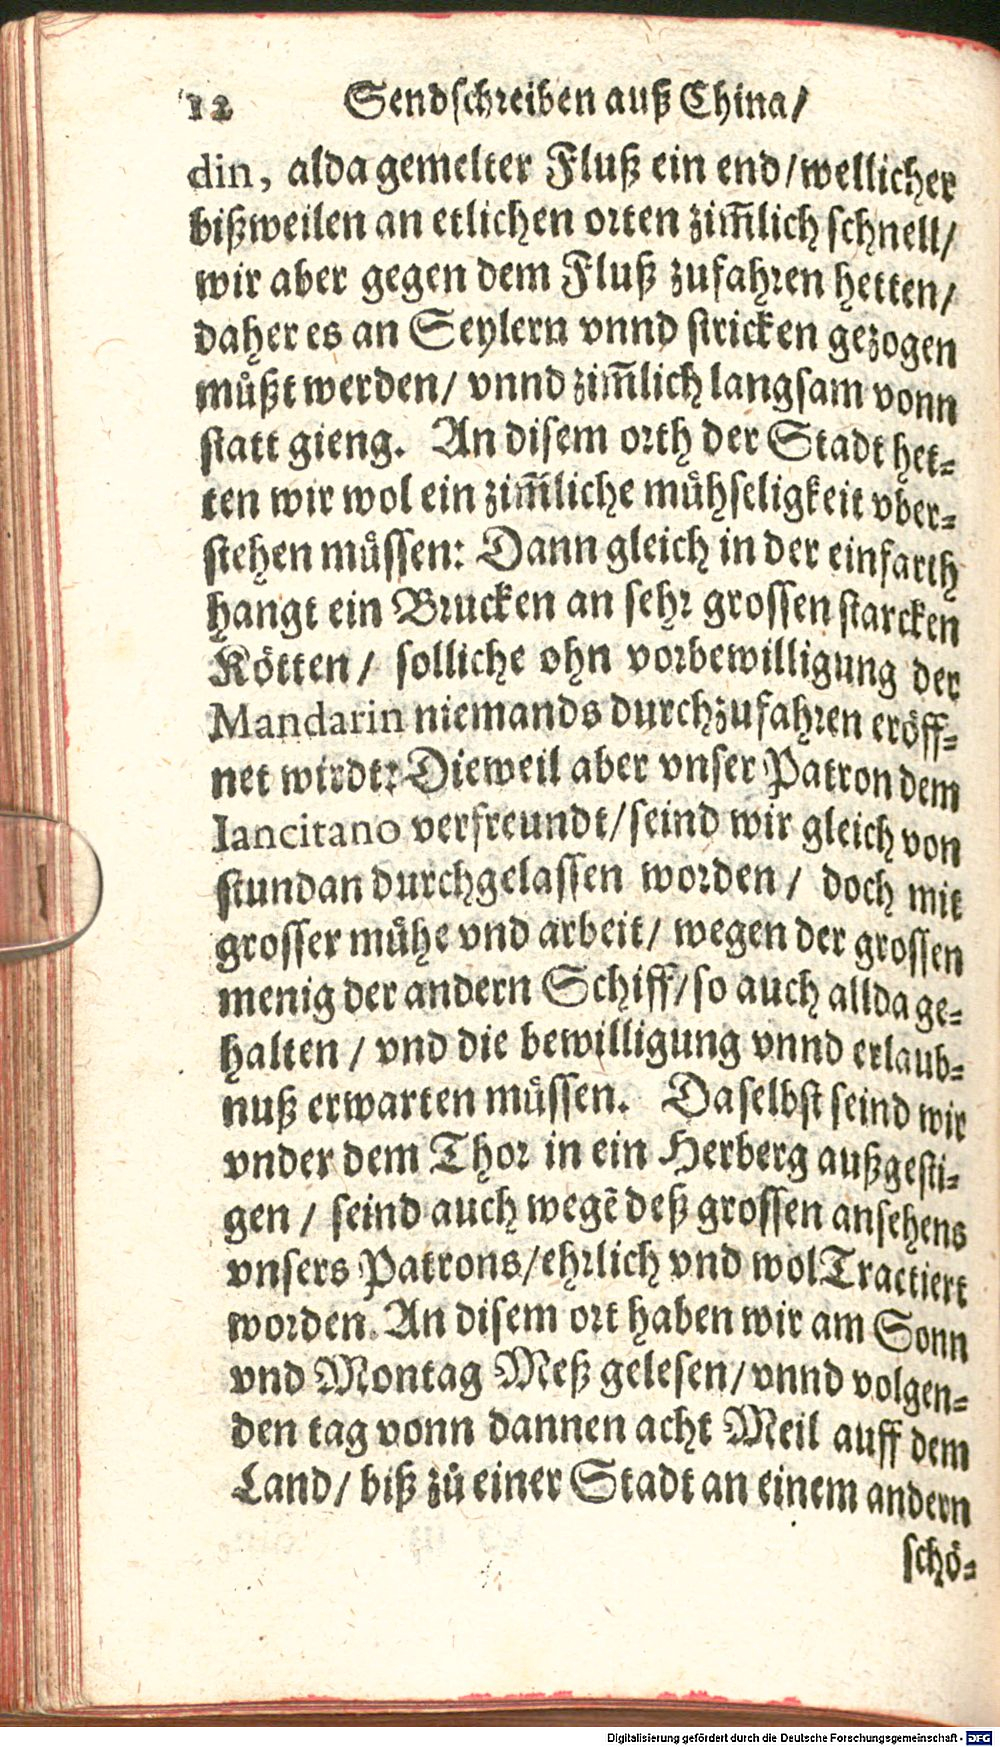 12 Sendschreiben auß China/
din, alda gemelter Fluß ein end/wellicher
bißweilen an etlichen orten zim̃lich schnell/
wir aber gegen dem Fluß zufahren hetten/
daher es an Seylern vnnd stricken gezogen
müßt werden/ vnnd zim̃lich langsam vonn
statt gieng. An disem orth der Stadt het-
ten wir wol ein zim̃liche mühseligkeit vber-
stehen müssen: Dann gleich in der einfarth
hangt ein Brucken an sehr grossen starcken
Kötten/ solliche ohn vorbewilligung der
Mandarin niemands durchzufahren eröff-
net wirdt: Dieweil aber vnser Patron dem
Iancitano verfreundt/seind wir gleich von
stundan durchgelassen worden/ doch mit
grosser mühe vnd arbeit/ wegen der grossen
menig der andern Schiff/so auch allda ge-
halten/ vnd die bewilligung vnnd erlaub-
nuß erwarten müssen. Daselbst seind wir
vnder dem Thor in ein Herberg außgesti-
gen/ seind auch wegẽ deß grossen ansehens
vnsers Patrons/ehrlich vnd wol Tractiert
worden. An disem ort haben wir am Sonn
vnd Montag Meß gelesen/ vnnd volgen-
den tag vonn dannen acht Meil auff dem
Land/ biß zů einer Stadt an einem andern
schö-
Digitalisierung gefördert durch die Deutsche Forschungsgemeinschaft - DFG